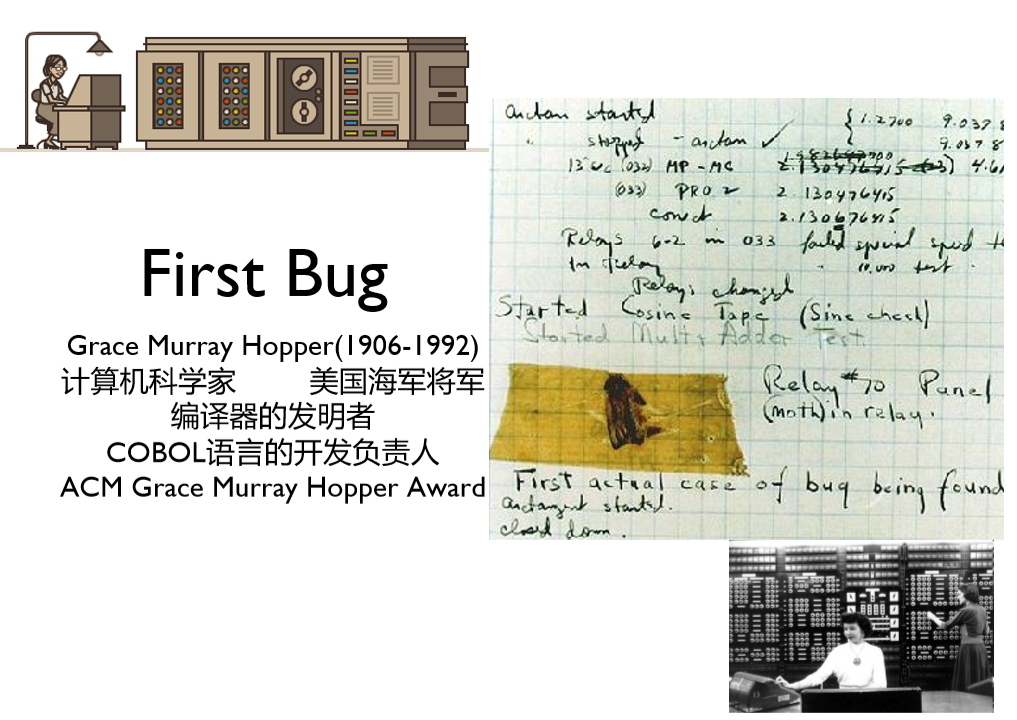 First Bug
Grace Murray Hopper(1906-1992)
计算机科学家 美国海军将军
编译器的发明者
COBOL语言的开发负责人
ACM Grace Murray Hopper Award
arctan started
" stopped - arctan ✓
{ 1.2700 9.037 8
9.037 8
13"uc (032) MP - MC 2.130476415 4.6
(033) PRO 2 2.130476415
conv't 2.130676415
Relays 6-2 in 033 failed special speed te
In Relay " 10.000 test .
Relays changed
Started Cosine Tape (Sine check)
Started Multi Adder Test.
Relay #70 Panel
(moth) in relay.
First actual case of bug being found
arctangent started.
closed down.